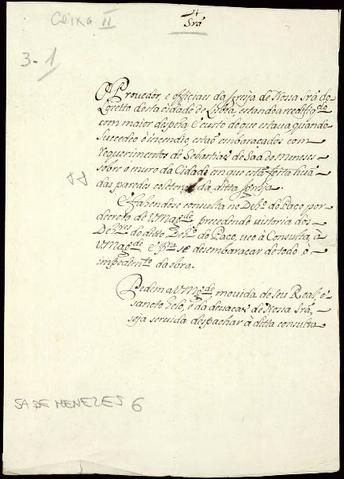 Caixa II
Srã
3-1
O Provedor, e officiaes da Igreja de Nossa Srã do
Loretto desta cidade de Lixbã, estando a redifigdo
com maior despeza, e custo do que estaua, quando
succedeo o incendio, estão embaraçados com
requerimentos de Sebastião de Saa de Meneses
sobre o muro da Cidade, en que está feita hũa
das paredes exteriores da ditta Igreja
E fazendose consulta no Dezº do Paço, por
decreto de V Magde precedendo vistoria dos
Dezres do ditto Dezº do Paço, veo â Consulta, â
V Magde E pª se desembaraçar de todo o
impedimento da obra.
Pedem a V Magde, movida de seu Real, e
sancto zelo, e da devação de Nossa Srã,
seja servida despachar â ditta consulta
SA DE MENEZES 6